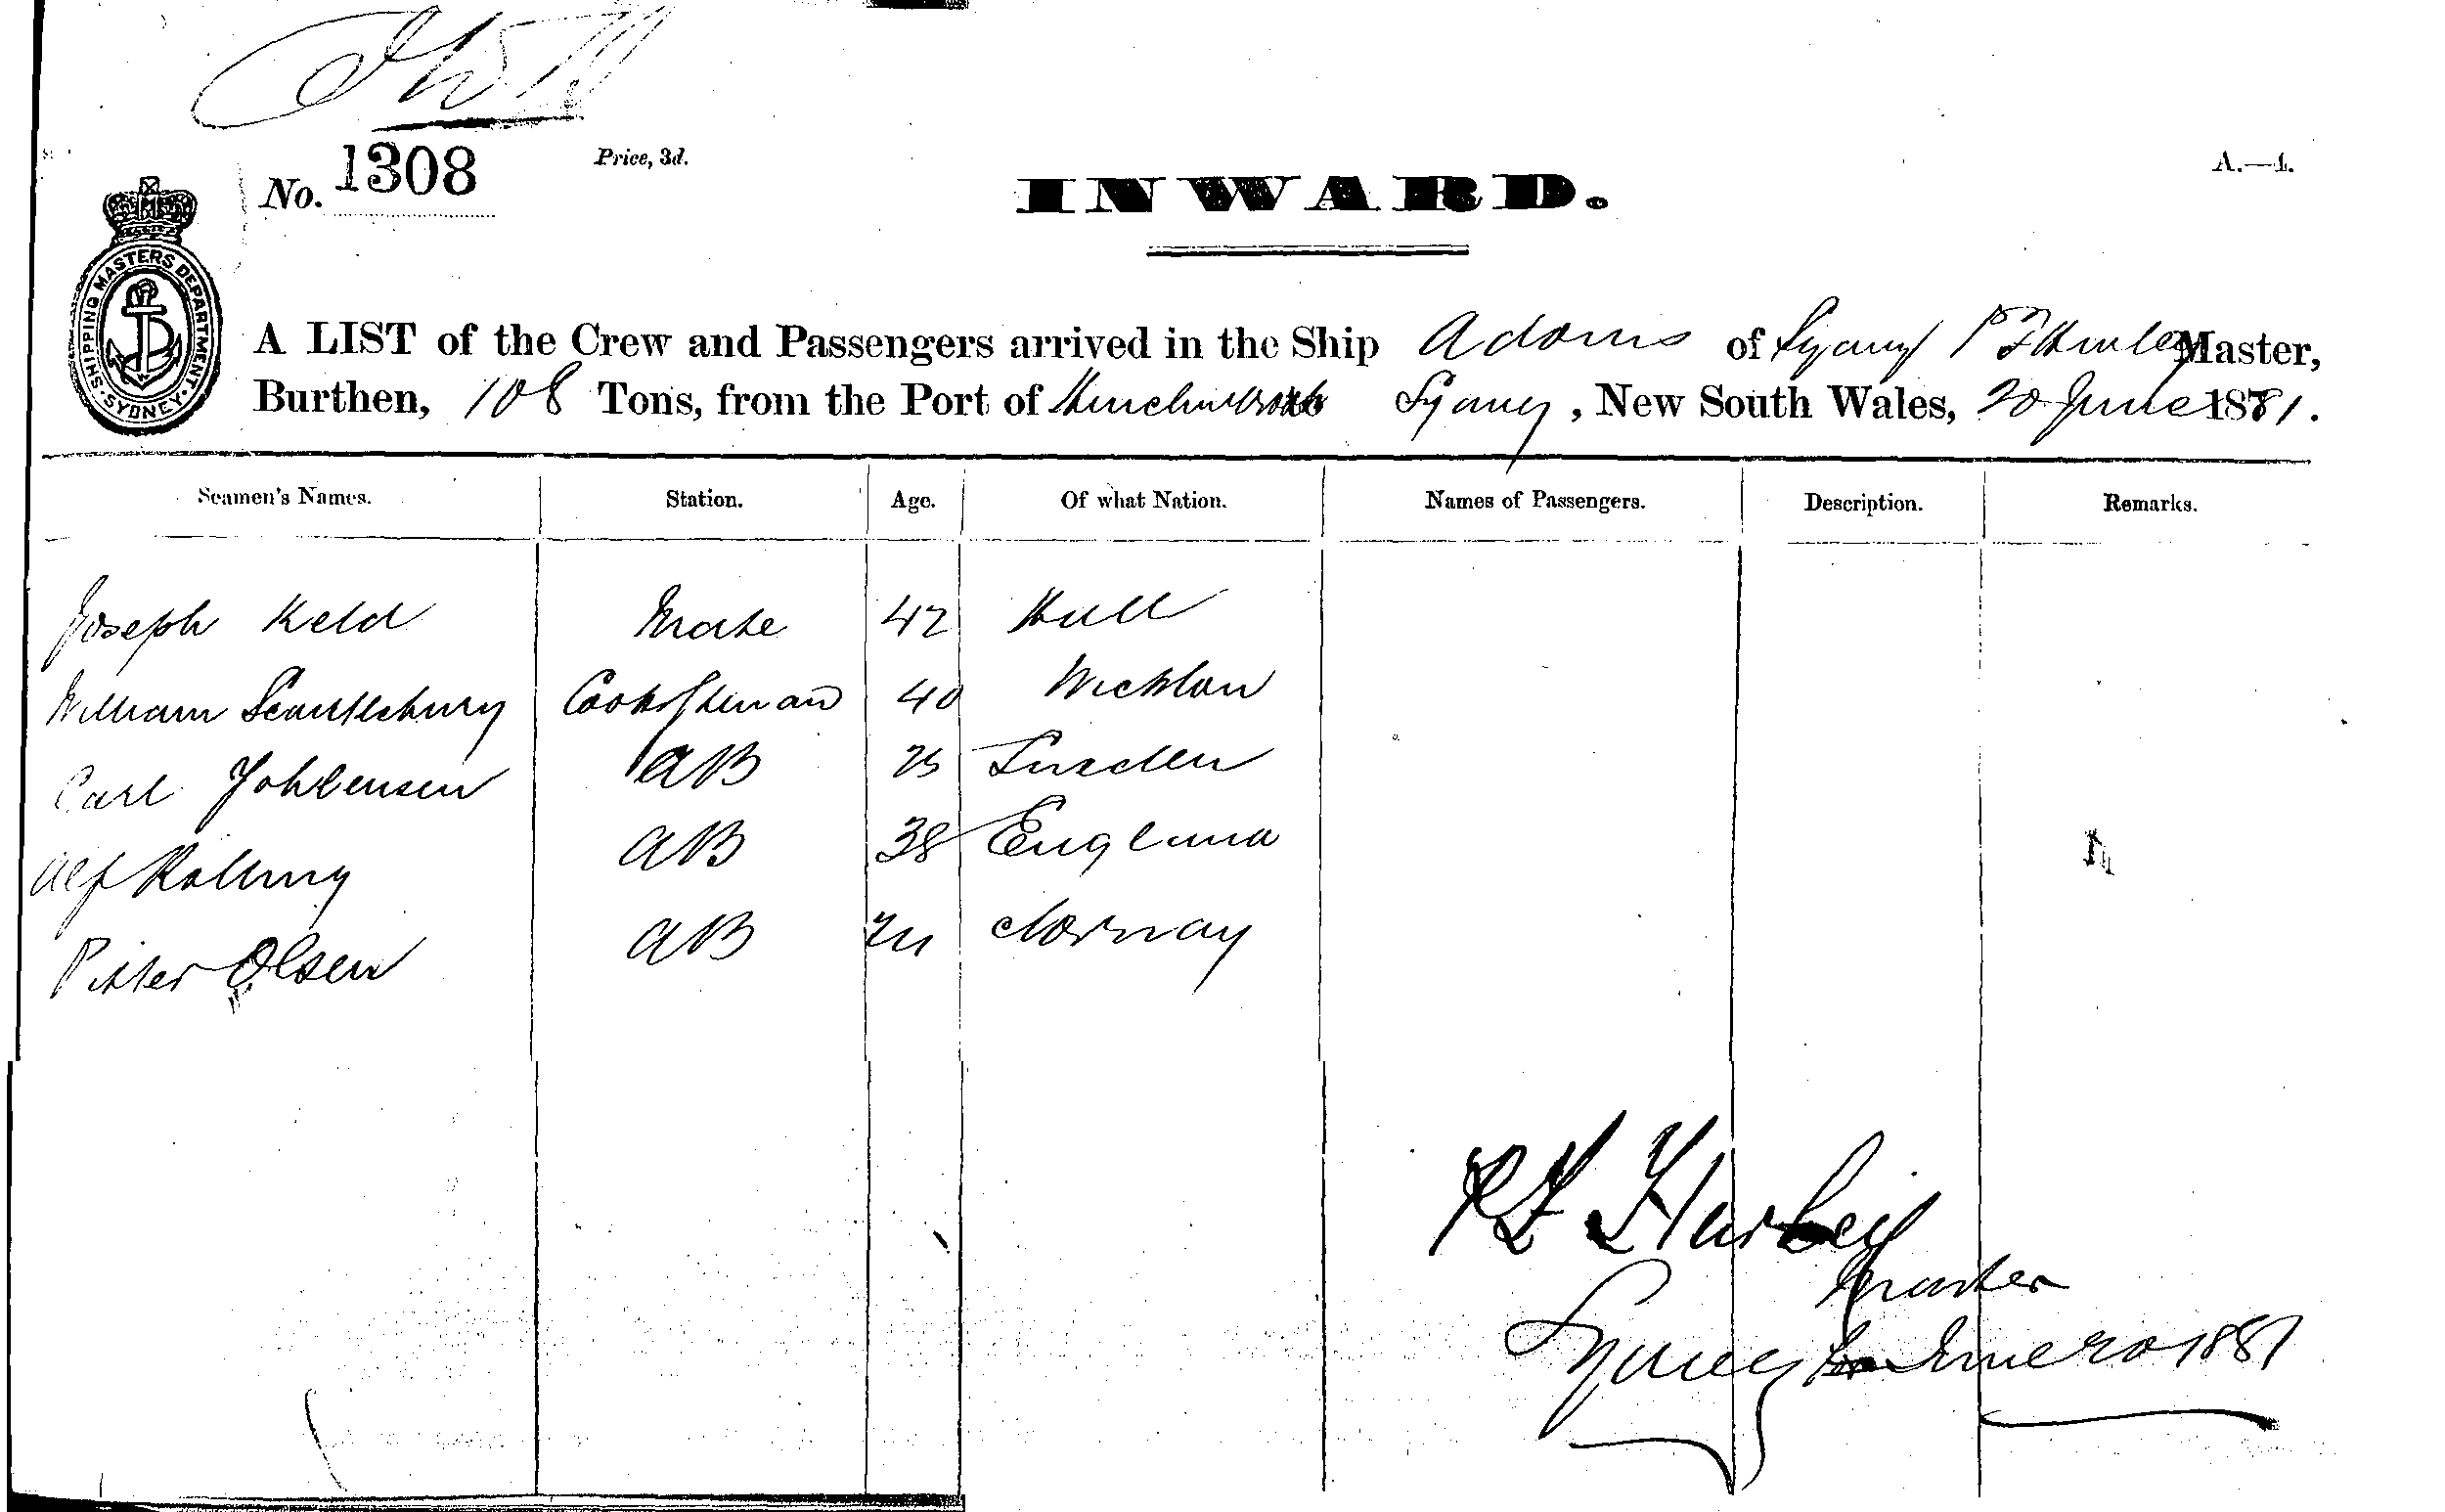 No. 1308
Price, 3d.
INWARD.
A.—4.
SHIPPING MASTERS DEPARTMENT · SYDNEY ·
A LIST of the Crew and Passengers arrived in the Ship Adonis of Sydney Master,
Burthen, 108 Tons, from the Port of Sydney, New South Wales, 20 June 1881.
Seamen's Names. Station. Age. Of what Nation. Names of Passengers. Description. Remarks.
Joseph Keld Mate 42 Hull
William Scantlebury Cook & Steward 40 Wicklow
Carl AB 25 Sweden
Alf AB 38 England
Peter Olsen AB Norway
Master
Sydney 1881